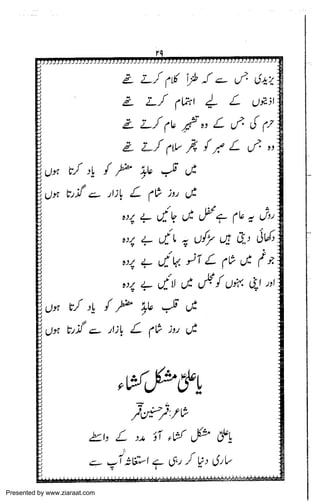 ۲۹
یزیدی جس سے کہ طنزاً کلام کرتے تھے
اذیتوں کے لیے اہتمام کرتے تھے
حرم کی جس کے وہ تشہیر عام کرتے تھے
وہ جس کے صبر کو پتھر سلام کرتے تھے
میں قلبِ عابدِ مضطر کو یاد کرتا ہوں
میں روز شام کے بازار سے گذرتا ہوں
روش یہ عام ہے محفل میں جائیں بے پردہ
دکھائی دیتی ہیں سڑکوں پہ مائیں بے پردہ
جو غم میں شام کے آنسو بہائیں بے پردہ
اور اپنی بہنوں کو مجلس میں لائیں بے پردہ
میں قلبِ عابدِ مضطر کو یاد کرتا ہوں
میں روز شام کے بازار سے گذرتا ہوں
یا علیؑ مشکل کشاء
شاعر: قمر حسنین قمر
یا علیؑ مشکل کشاء آؤ مدد کے واسطے
ساری دنیا کر رہی ہے استغاثہ آپ سے
Presented by www.ziaraat.com